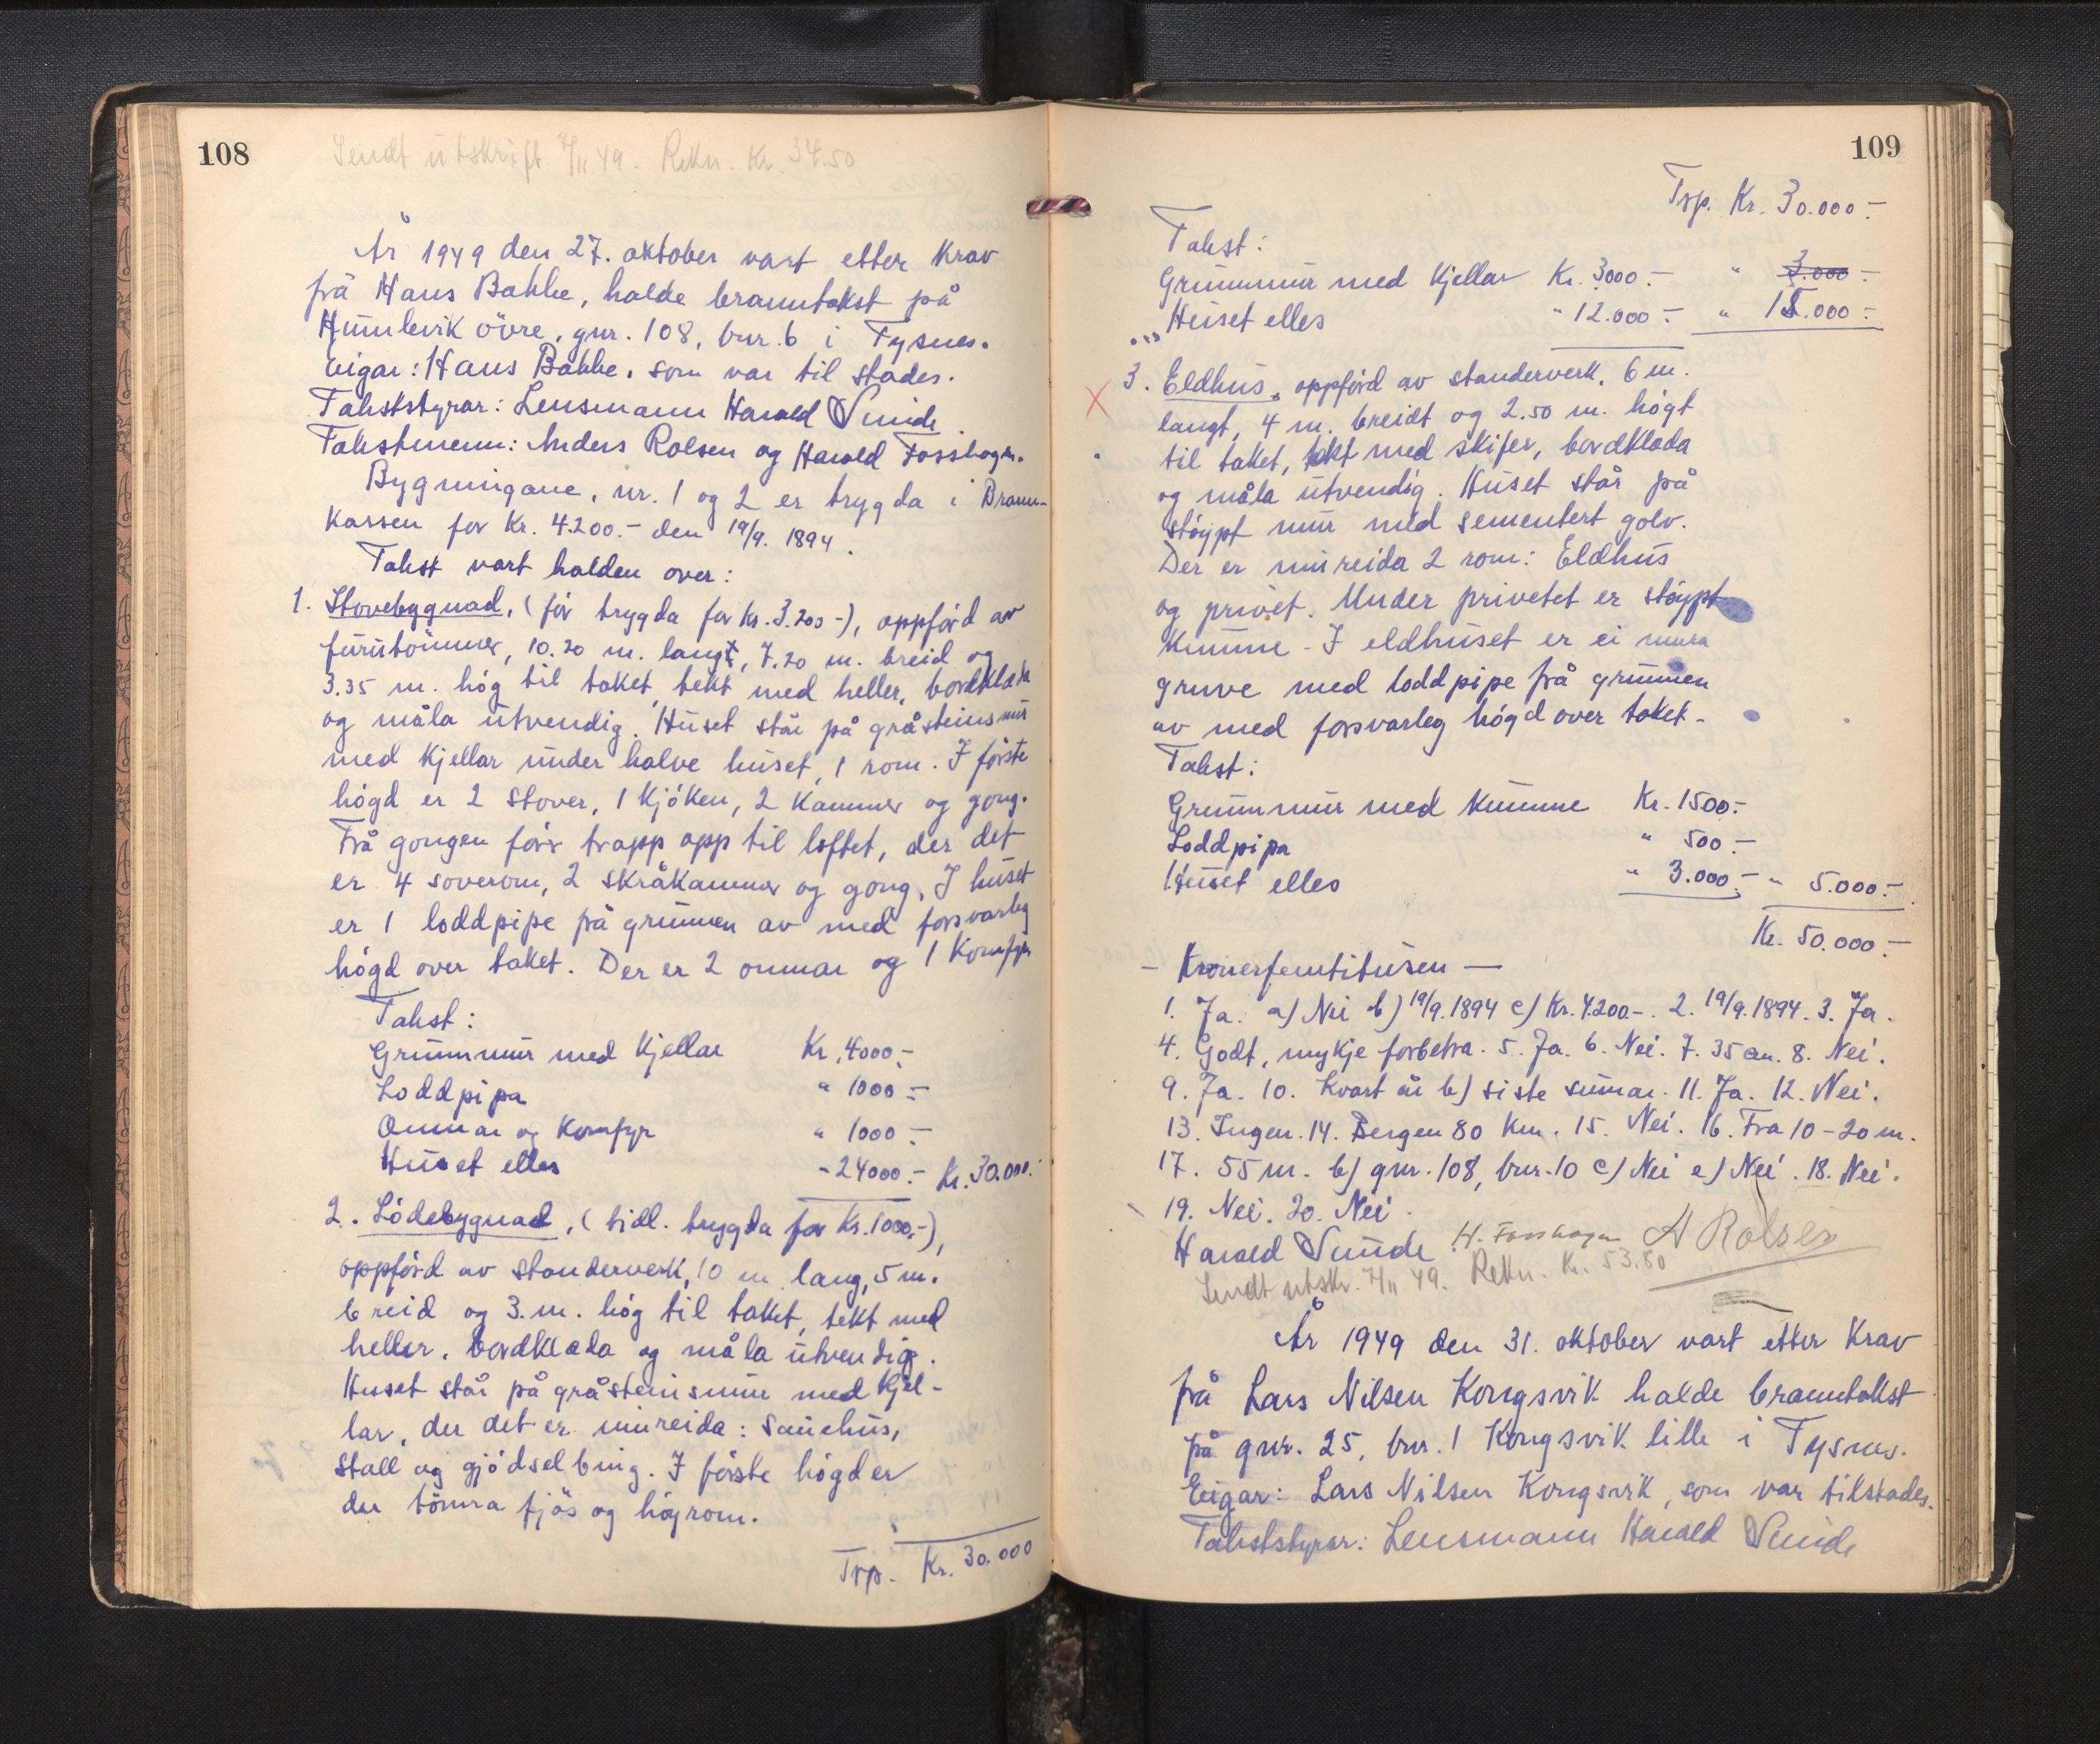 108
Sendt utskrift 7/11.49. Rekn. Kr. 34.50
År 1949 den 27. oktober vart etter krav
frå Hans Bakke, halde branntakst på
Humlevik övre, gnr. 108, bnr. 6 i Tysnes.
Eigar: Hans Bakke, som var til stades.
Takststyrar: Lensmann Harald Sunde.
Takstmenn: Anders Rolsen og Harald Fosshagen.
Bygningane, nr. 1 og 2 er trygda i Brann-
kassen for Kr. 4.200.- den 19/9. 1894.
Takst vart halden over:
1. Stovebygnad, (för trygda for Kr. 3.200-), oppförd av
furutömmer, 10.20 m. langt, 7.20 m. breid og
3.35 m. hög til taket, tekt med heller, bordklædd
og måla utvendig. Huset står på gråsteinsmur
med kjellar under halve huset, 1 rom. I förste
högd er 2 stover, 1 kjöken, 2 kammer og gong.
Frå gongen förer trapp opp til loftet, der det
er 4 soverom, 2 skråkammer og gong. I huset
er 1 loddpipe frå grunnen av med forsvarleg
högd over taket. Der er 2 omnar og 1 komfyr
Takst:
Grunnmur med kjellar Kr. 4000.-
Loddpipa " 1000.-
Omnar og komfyr " 1000.-
Huset elles - 24000.- Kr. 30.000.-
2. Lödebygnad, (tidl. trygda for Kr. 1000.-),
oppförd av standerverk, 10 m. lang, 5 m.
breid og 3. m. hög til taket, tekt med
heller, bordklæda og måla utvendig.
Huset står på gråsteinsmur med kjel-
lar, der det er innreida: Sauehus,
stall og gjödselbing. I förste högd er
der tömra fjös og höyrom.
Trp. Kr. 30.000
109
Trp. Kr. 30.000.-
Takst:
Grunnmur med kjellar Kr. 3000.- " 3.000.-
Huset elles " 12.000.- " 15.000.-
3. Eldhus, oppförd av standerverk, 6 m.
langt, 4 m. breidt og 2.50 m. högt
til taket, tekt med skifer, bordklæda
og måla utvendig. Huset står på
stöypt mur med sementert golv.
Der er innreida 2 rom: Eldhus
og privet. Under privetet er stöypt
kumme. I eldhuset er ei mura
gruve med loddpipe frå grunnen
av med forsvarleg högd over taket.
Takst:
Grunnmur med kumme Kr. 1500.-
Loddpipa " 500.-
Huset elles " 3.000.- " 5.000.-
Kr. 50.000.-
- Kronerfemtitusen -
1. Ja. a) Nei b) 19/9.1894 c) Kr. 4.200.-. 2. 19/9.1894. 3. Ja.
4. Godt, mykje forbetra. 5. Ja. 6. Nei. 7. 35 cm. 8. Nei.
9. Ja. 10. Kvart år b) siste sumar. 11. Ja. 12. Nei.
13. Ingen. 14. Bergen 80 km. 15. Nei. 16. Fra 10-20 m.
17. 55 m. b) gnr. 108, bnr. 10 c) Nei e) Nei. 18. Nei.
19. Nei. 20. Nei.
Harald Sunde H. Fosshagen A Rolsen
Sendt utskr. 7/11 49. Rekn. Kr. 53.80
År 1949 den 31. oktober vart etter krav
frå Lars Nilsen Kongsvik halde branntakst
på gnr. 25, bnr. 1 Kongsvik lille i Tysnes.
Eigar: Lars Nilsen Kongsvik, som var tilstades.
Takststyrar: Lensmann Harald Sunde